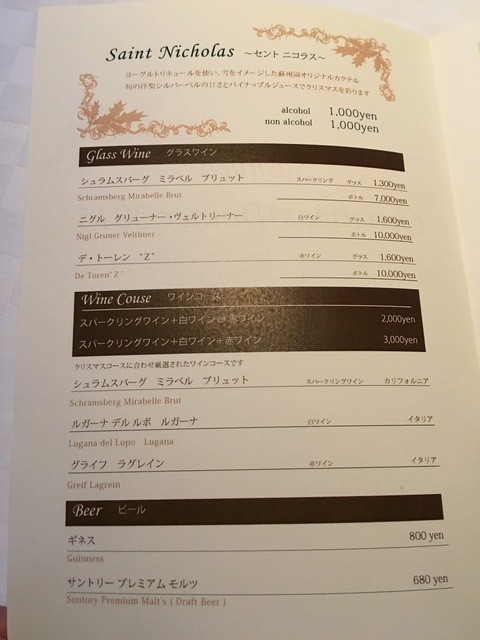 Saint Nicholas ～セント ニコラス～
ヨーグルトリキュールを使い、雪をイメージした蘇州園オリジナルカクテル
旬の洋梨シルバーベルの甘さとパイナップルジュースでクリスマスを彩ります
alcohol 1,000yen
non alcohol 1,000yen
Glass Wine グラスワイン
シュラムスバーグ ミラベル ブリュット スパークリング グラス 1,300yen
Schramsberg Mirabelle Brut ボトル 7,000yen
ニグル グリューナー・ヴェルトリーナー 白ワイン グラス 1,600yen
Nigl Gruner Veltliner ボトル 10,000yen
デ・トーレン "Z" 赤ワイン グラス 1,600yen
De Toren"Z" ボトル 10,000yen
Wine Couse ワインコース
スパークリングワイン＋白ワイン or 赤ワイン 2,000yen
スパークリングワイン＋白ワイン＋赤ワイン 3,000yen
クリスマスコースに合わせ厳選されたワインコースです
シュラムスバーグ ミラベル ブリュット スパークリングワイン カリフォルニア
Schramsberg Mirabelle Brut
ルガーナ デル ルポ ルガーナ 白ワイン イタリア
Lugana del Lupo Lugana
グライフ ラグレイン 赤ワイン イタリア
Greif Lagrein
Beer ビール
ギネス 800 yen
Guinness
サントリー プレミアム モルツ 680 yen
Suntory Premium Malt's ( Draft Beer )